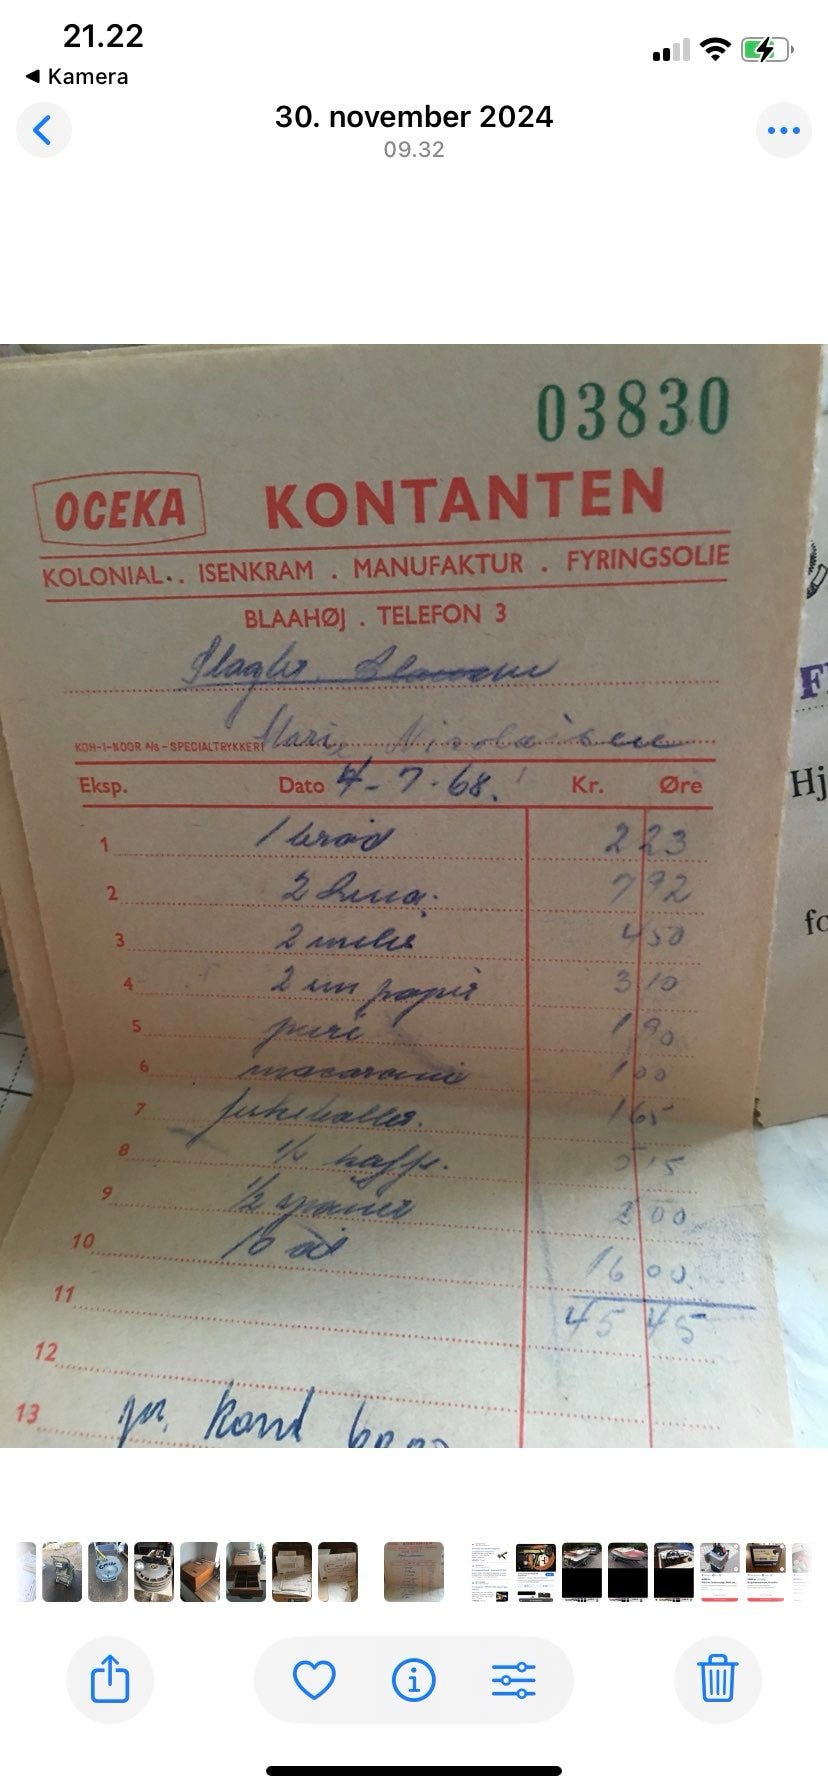 21.22
Kamera
30. november 2024
09.32
03830
OCEKA KONTANTEN
KOLONIAL . ISENKRAM . MANUFAKTUR . FYRINGSOLIE
BLAAHØJ . TELEFON 3
Slagter
KOH-I-NOOR A/S - SPECIALTRYKKERI Marie Nicolaisen
Eksp. Dato 4-7-68. Kr. Øre
1 1 brød 2 23
2 2 7 92
3 2 4 50
4 2 papir 3 10
5 puré 1 90
6 macaroni 1 00
7 fiskeboller. 1 65
8 1/4 kaffe. 5 15
9 1/2 2 00
10 10 øl 16 00
11 45 45
12
13 kont
F
Hj
fo